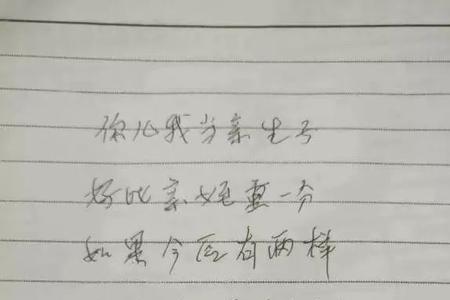 你儿我当亲生子
好比亲姪重一分
如果今后有两样